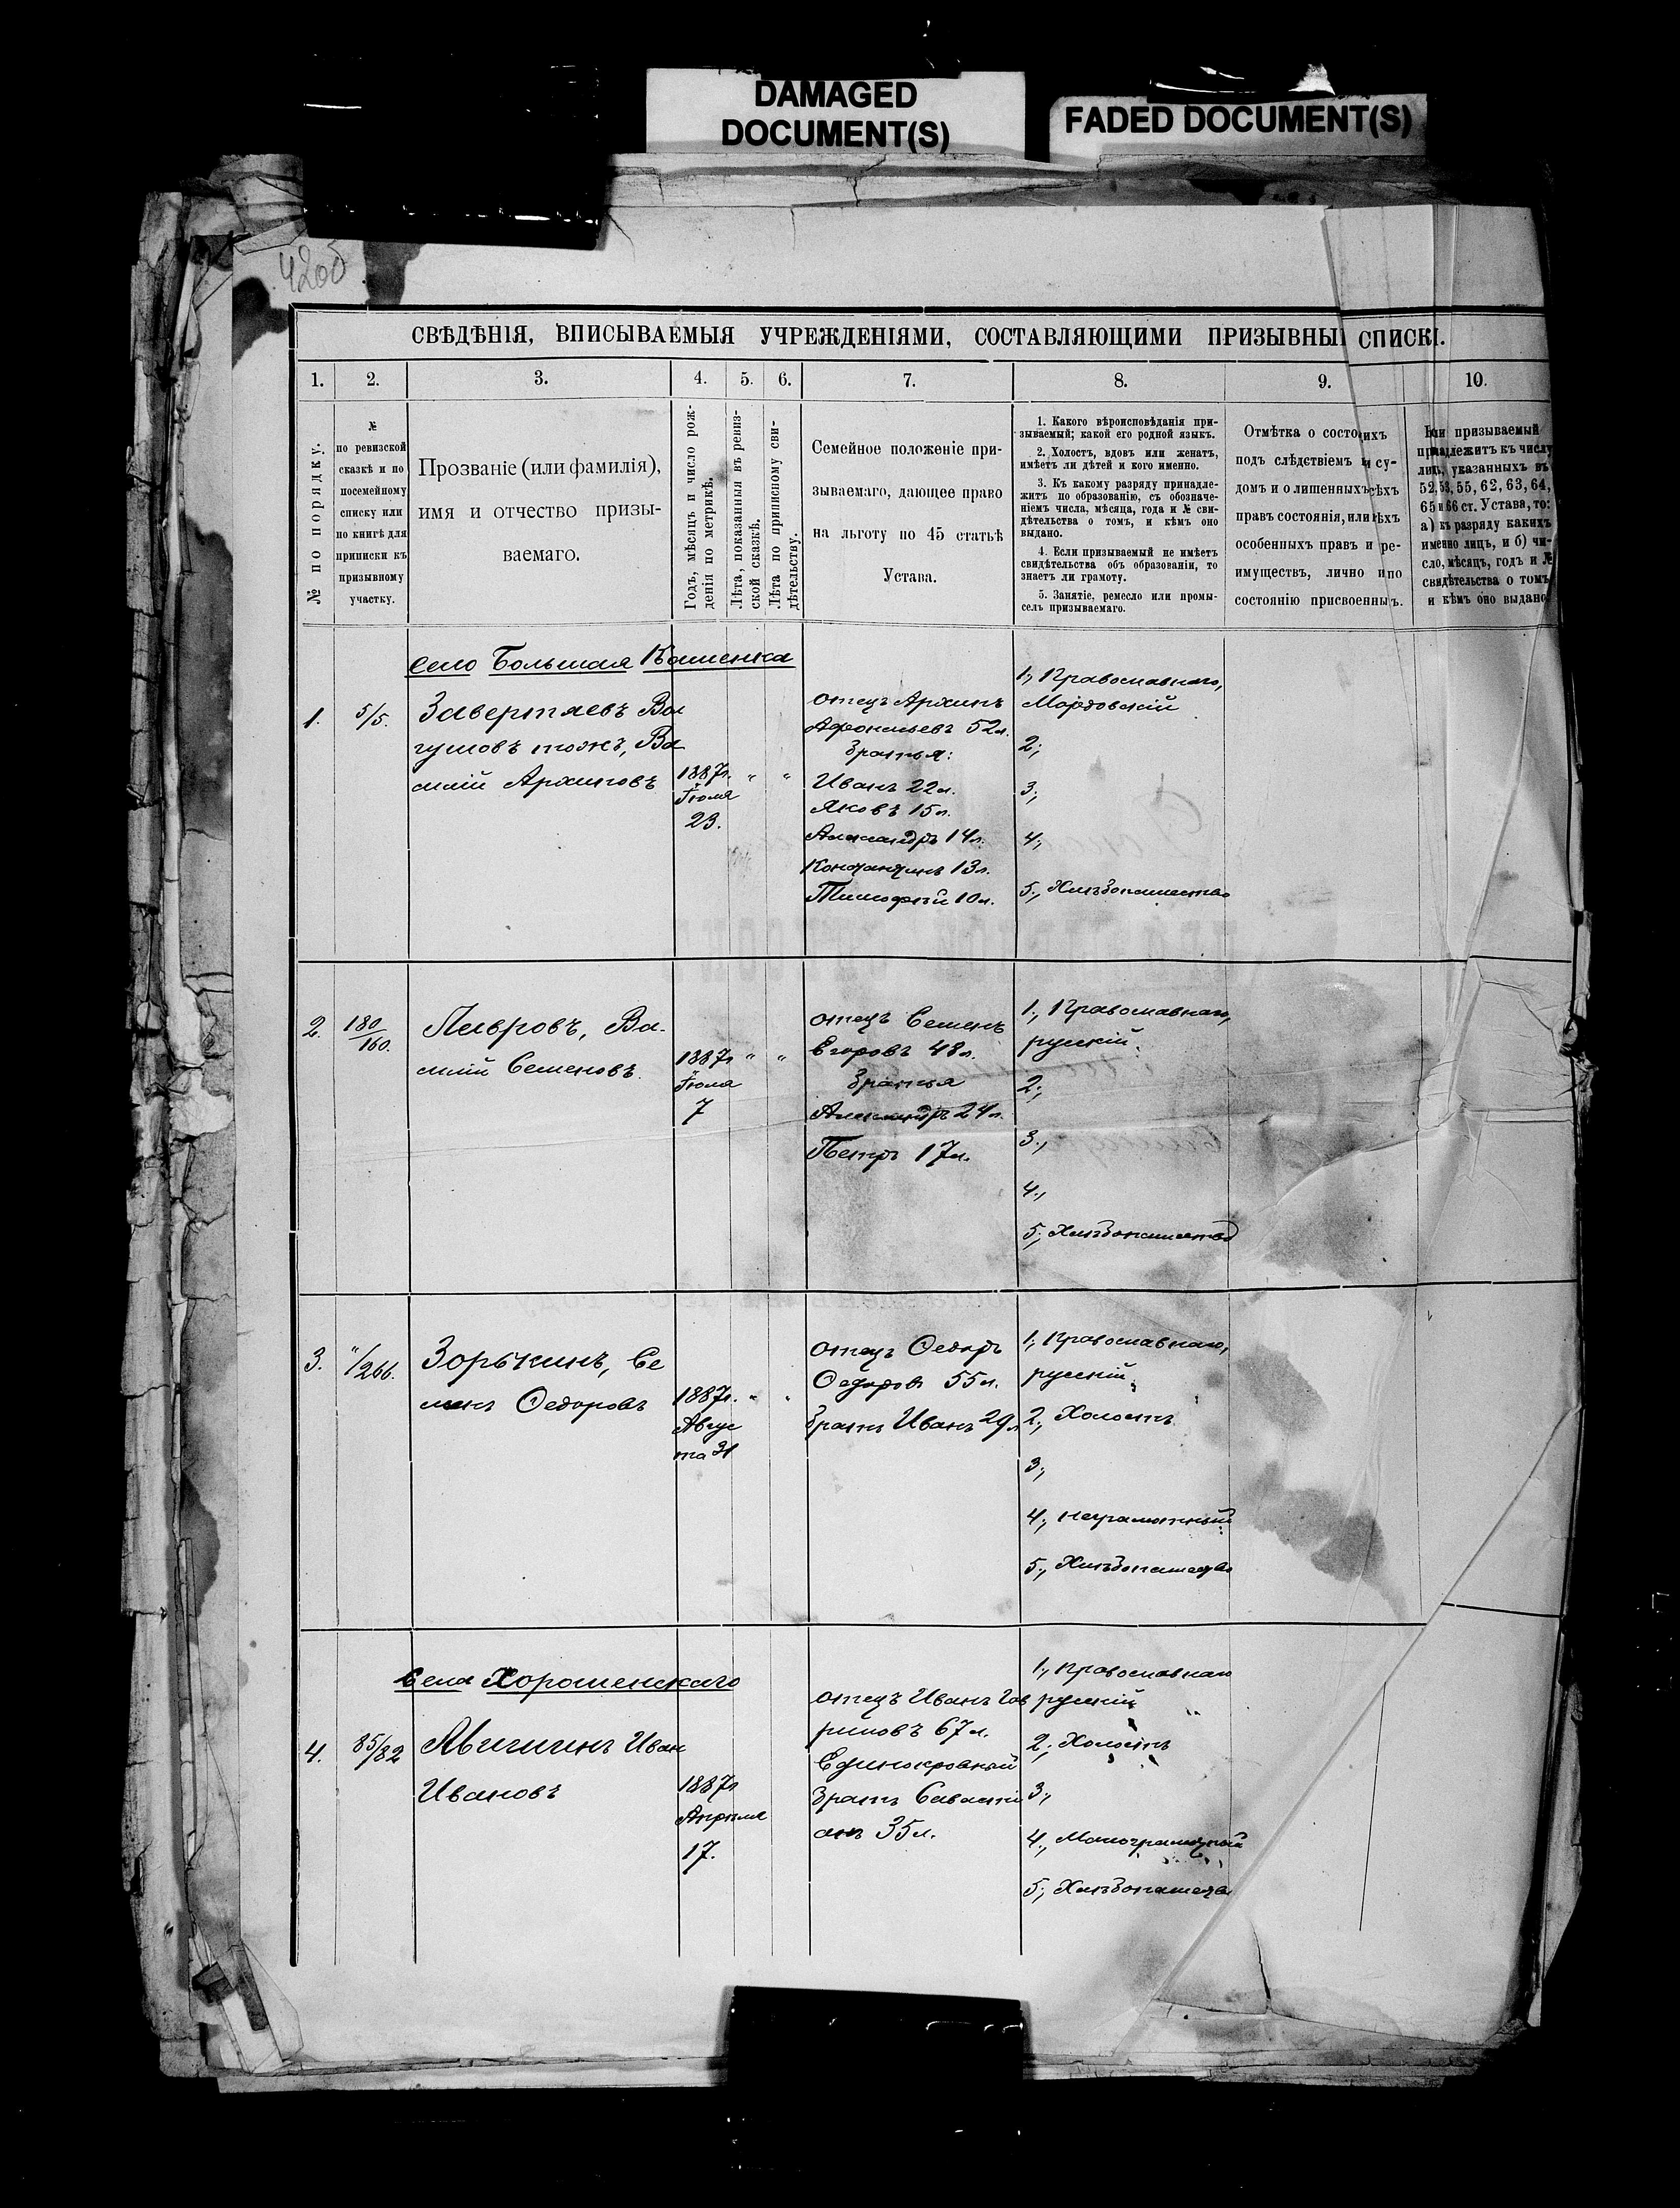 DAMAGED
DOCUMENT(S)
FADED DOCUMENT(S)
СВѢДѢНІЯ, ВПИСЫВАЕМЫЯ УЧРЕЖДЕНІЯМИ, СОСТАВЛЯЮЩИМИ ПРИЗЫВНЫ СПИСКІ.
1.
2.
3.
4.
5.
6.
7.
8.
9.
10.
№ по порядку.
№
по ревизской
сказкѣ и по
посемейному
списку или
по книгѣ для
приписки къ
призывному
участку.
Прозваніе (или фамилія),
имя и отчество призы-
ваемаго.
Годъ, мѣсяцъ и число рож-
денія по метрикѣ.
Лѣта, показанныя въ ревиз-
ской сказкѣ.
Лѣта по приписному сви-
дѣтельству.
Семейное положеніе при-
зываемаго, дающее право
на льготу по 45 статьѣ
Устава.
1. Какого вѣроисповѣданія при-
зываемый; какой его родной языкъ.
2. Холостъ, вдовъ или женатъ,
имѣетъ ли дѣтей и кого именно.
3. Къ какому разряду принадле-
житъ по образованію, съ обозначе-
ніемъ числа, мѣсяца, года и № сви-
дѣтельства о томъ, и кѣмъ оно
выдано.
4. Если призываемый не имѣетъ
свидѣтельства объ образованіи, то
знаетъ ли грамоту.
5. Занятіе, ремесло или промы-
селъ призываемаго.
Отмѣтка о состо ихъ
подъ слѣдствіемъ и су-
домъ и о лишенныхъ сѣхъ
правъ состоянія, или ѣхъ
особенныхъ правъ и ре-
имуществъ, лично и по
состоянію присвоенныхъ.
призываемый
принадлежитъ къ числу
лицъ, указанныхъ въ
52, 53, 55, 62, 63, 64,
65 и 66 ст. Устава, то:
а) къ разряду какихъ
именно лицъ, и б) чи-
сло, мѣсяцъ, годъ и №
свидѣтельства о томъ
и кѣмъ оно выдано
село Большая Каменка
1.
5/5.
Завертяевъ Ва
гушовъ тожъ, Ва
силій Архиповъ
1887г.
Іюля
23.
" "
отецъ Архипъ
Афонасьевъ 52л.
братья:
Иванъ 22л.
Яковъ 15л.
Александръ 14л.
Константинъ 13л.
Тимофѣй 10л.
1., Православнаго,
Мордовскій
2;
3;
4;
5., Хлѣбопашество
2.
180/160.
Лавровъ, Ва-
силій Семеновъ
1887г
Іюля
7
" "
отецъ Семенъ
Егоровъ 48л.
братья
Александръ 24л.
Петръ 17л.
1., Православнаго,
русскій.
2.,
3.,
4.,
5., Хлѣбопашество
3.
"/266.
Зорькинъ, Се
менъ Федоровъ
1887г.
Авгус
та 31
" "
отецъ Федоръ
Федоровъ 55л.
братъ Иванъ 29л
1., Православнаго,
русскій
2., Холостъ
3.,
4., неграмотный
5., Хлѣбопашество
Села Хорошенскаго
4.
85/82
Иван
Ивановъ
1887г
Апрѣля
17.
отецъ Иванъ Гав
риловъ 67л.
Единокровный
братъ Савасті
анъ 35л.
1., Православнаго
русскій
2., Холостъ
3.,
4., Малограмотный
5., Хлѣбопашество